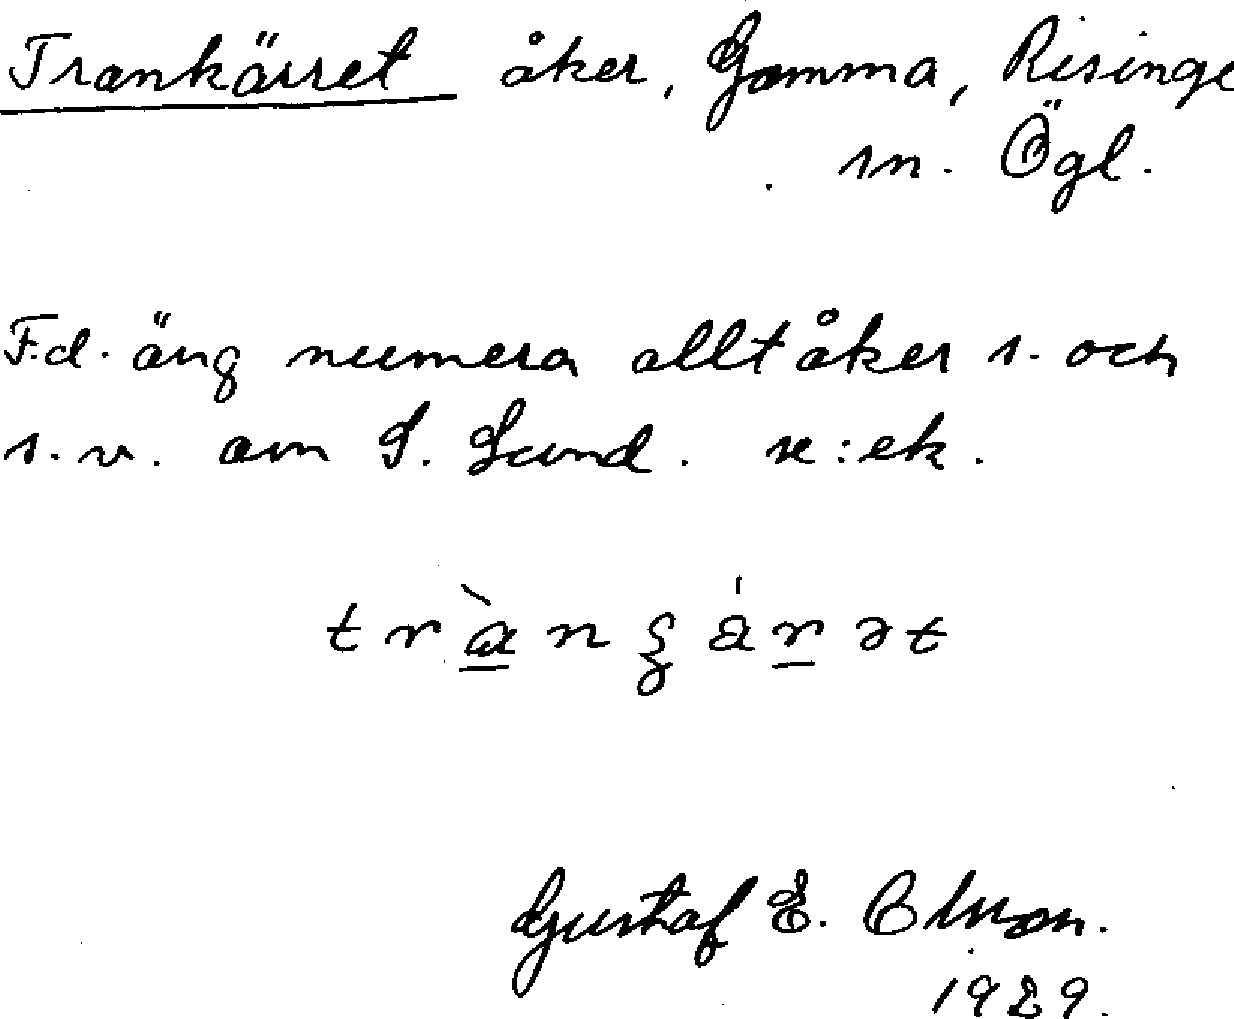 Trankärret åker, Gomma, Risinge
sn. Ögl.
F.d. äng numera allt åker s. och
s.v. om S. Lund. se: ek.
Gustaf E. Olsson.
1929.